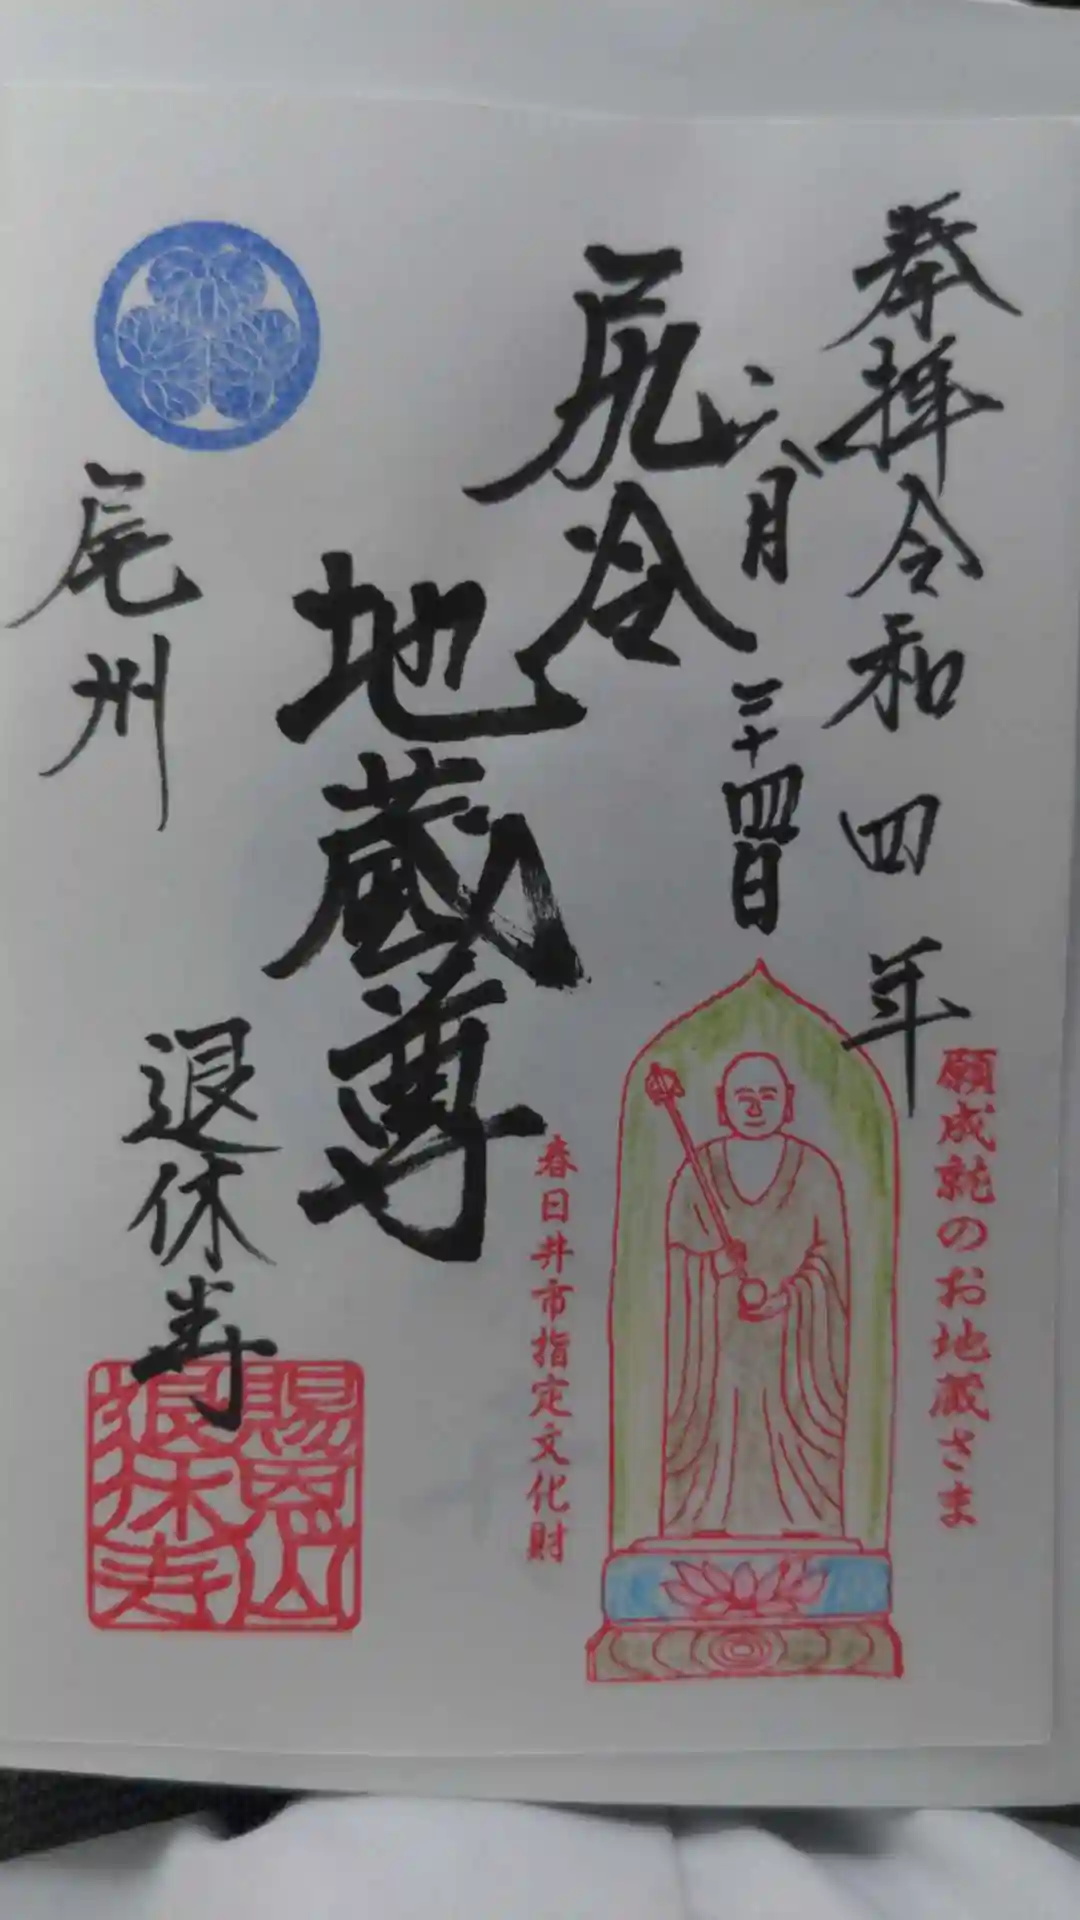 奉拝令和四年
二月二十四日
尻冷
地蔵尊
尾州
退休寺
願成就のお地蔵さま
春日井市指定文化財
賜恩山
退休寺